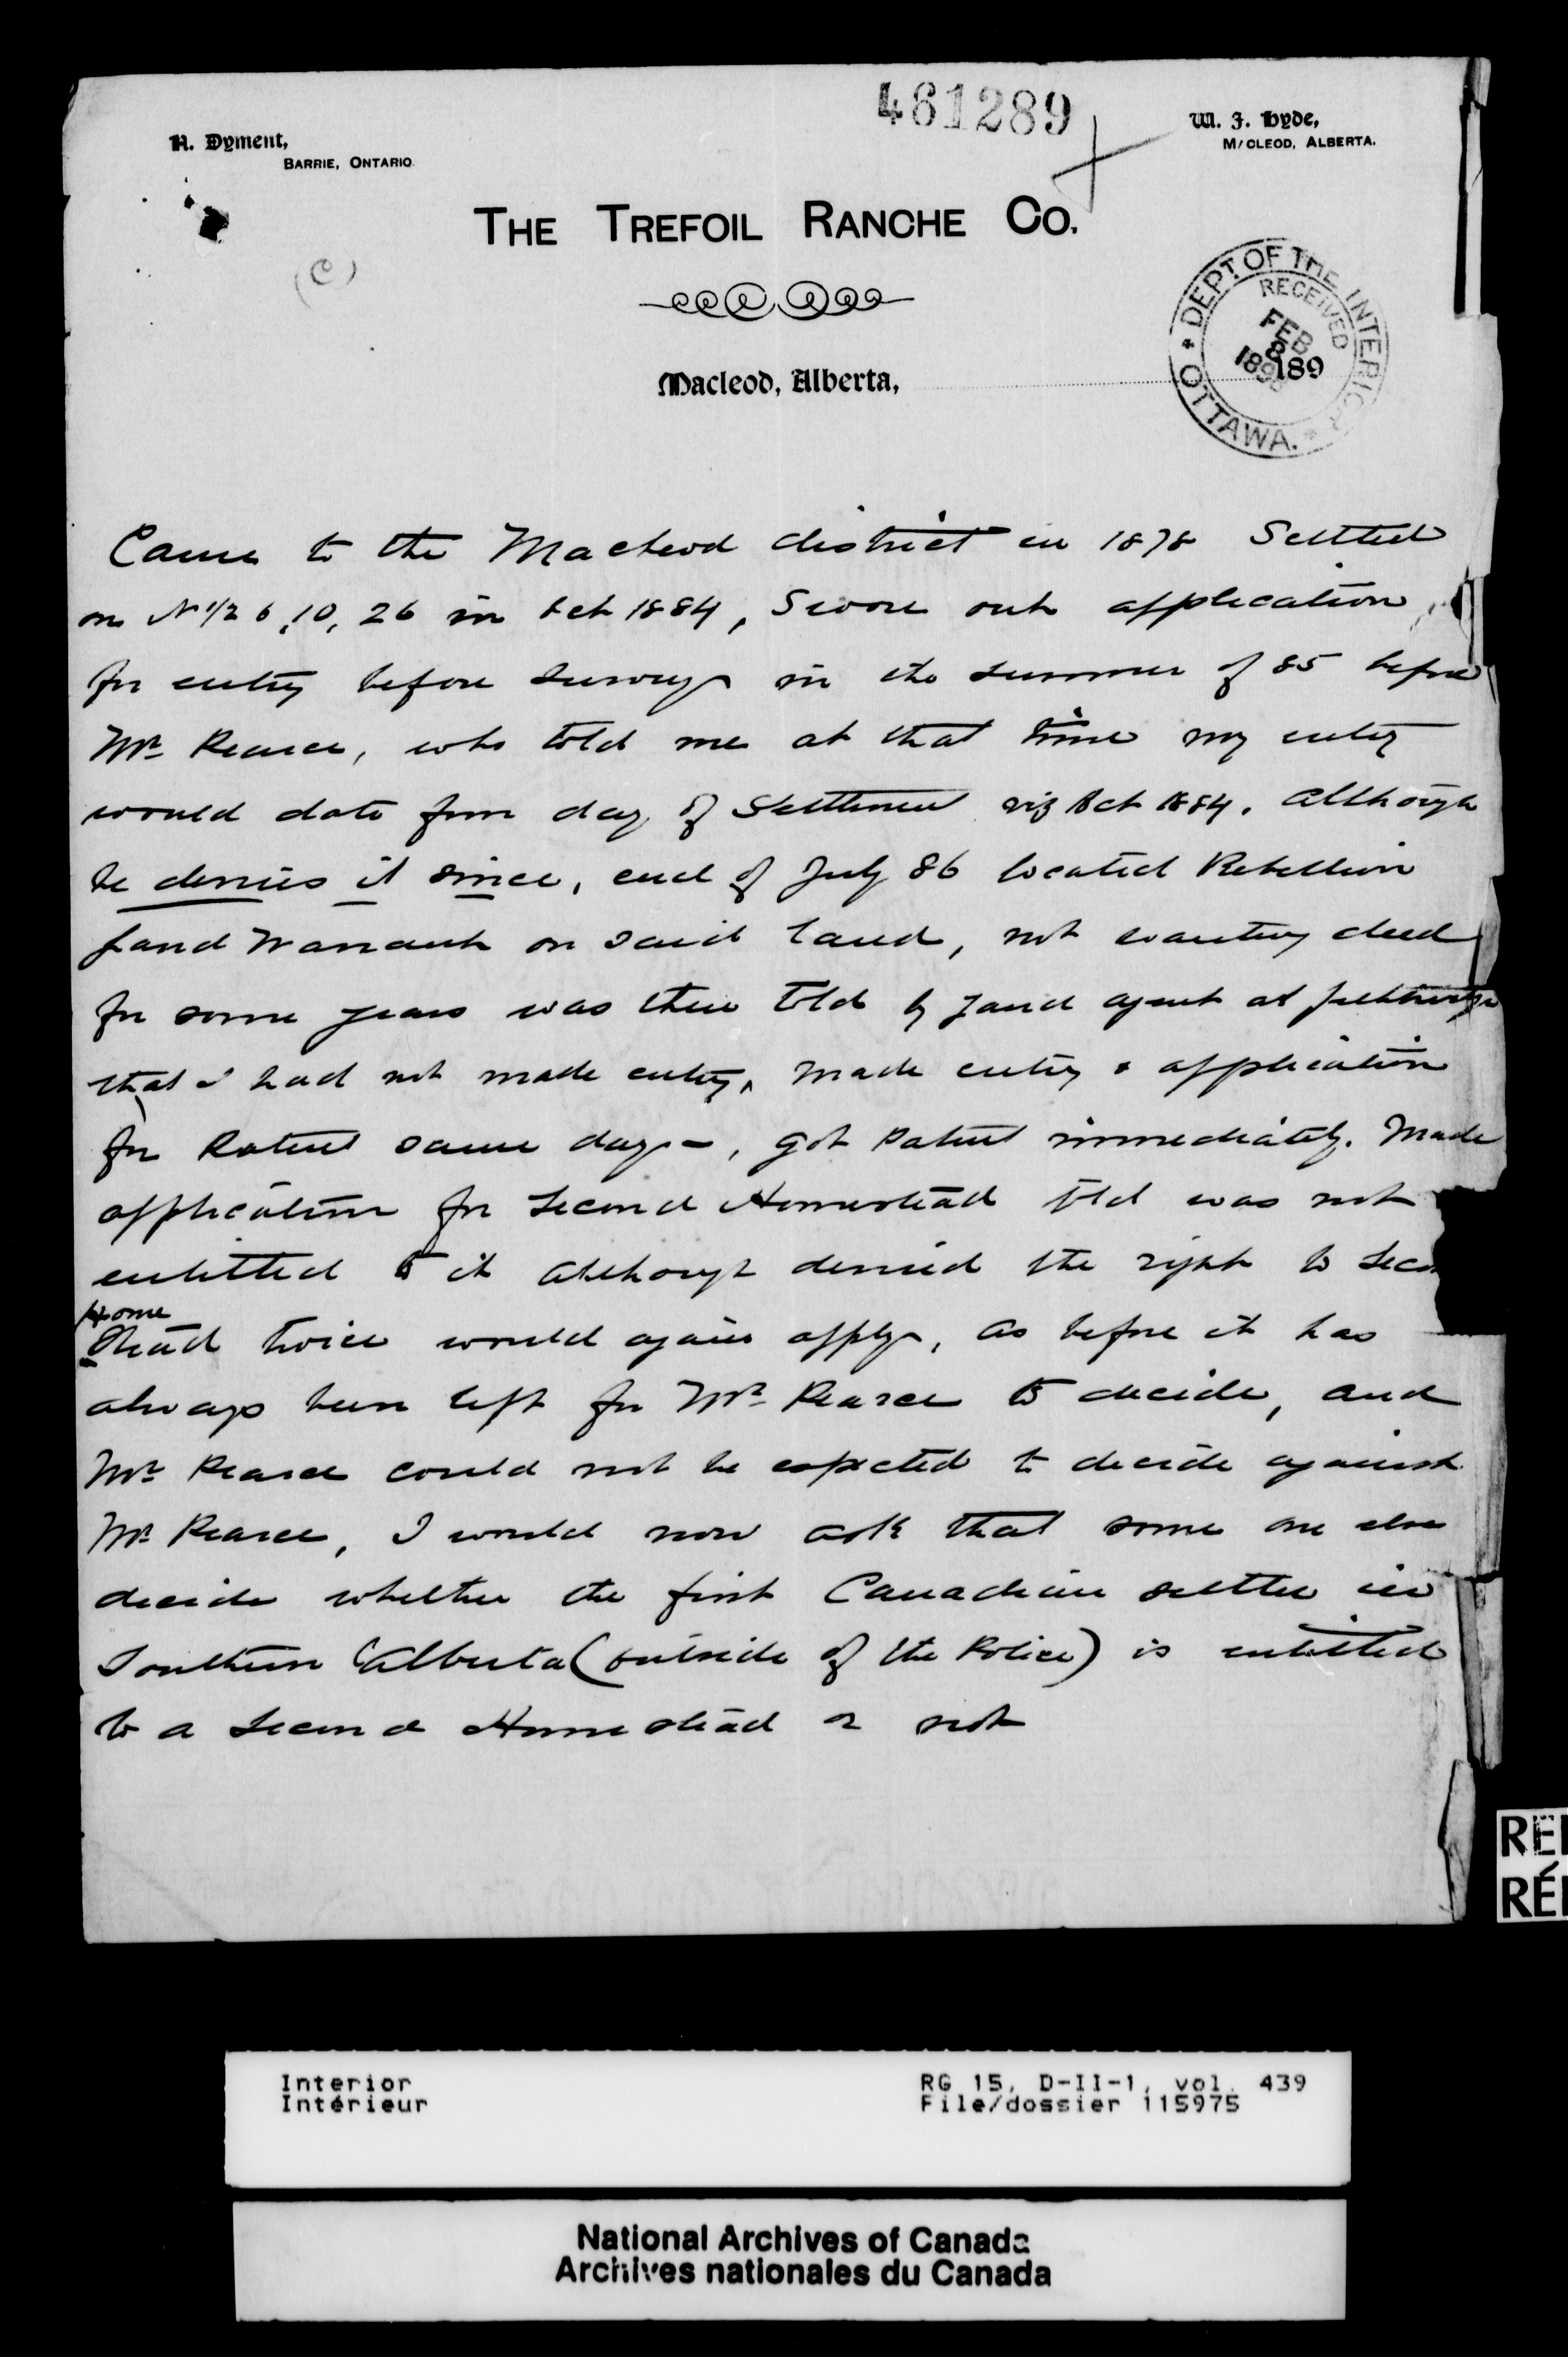 461289
N. Dyment,
BARRIE, ONTARIO.
W. F. Hyde,
McCLEOD, ALBERTA.
THE TREFOIL RANCHE CO.
(C)
DEPT OF THE INTERIOR
RECEIVED
FEB
8
189
OTTAWA.
Macleod, Alberta, 189
Came to the Macleod district in 1878 Settled
on N 1/2 6, 10, 26 in Oct 1884, Swore out application
for entry before Survey in the summer of 85 before
Mr. Pearce, who told me at that time my entry
would date from day of Settlement viz Oct 1884. although
he denies it since, end of July 86 located Rebellion
Land Warrant on said land, not wanting deed
for some years was then told by Land agent at Lethbridge
that I had not made entry, made entry & application
for Patent same day -, got Patent immediately. Made
application for Second Homestead told was not
entitled to it although denied the right to Seco
Home
Stead twice would again apply, as before it has
always been left for Mr. Pearce to decide, and
Mr. Pearce could not be expected to decide against
Mr. Pearce, I would now ask that some one else
decide whether the first Canadian settler in
Southern Alberta (outside of the Police) is entitled
to a Second Homestead or not
Interior
Intérieur
RG 15, D-II-1, vol. 439
File/dossier 115975
National Archives of Canada
Archives nationales du Canada